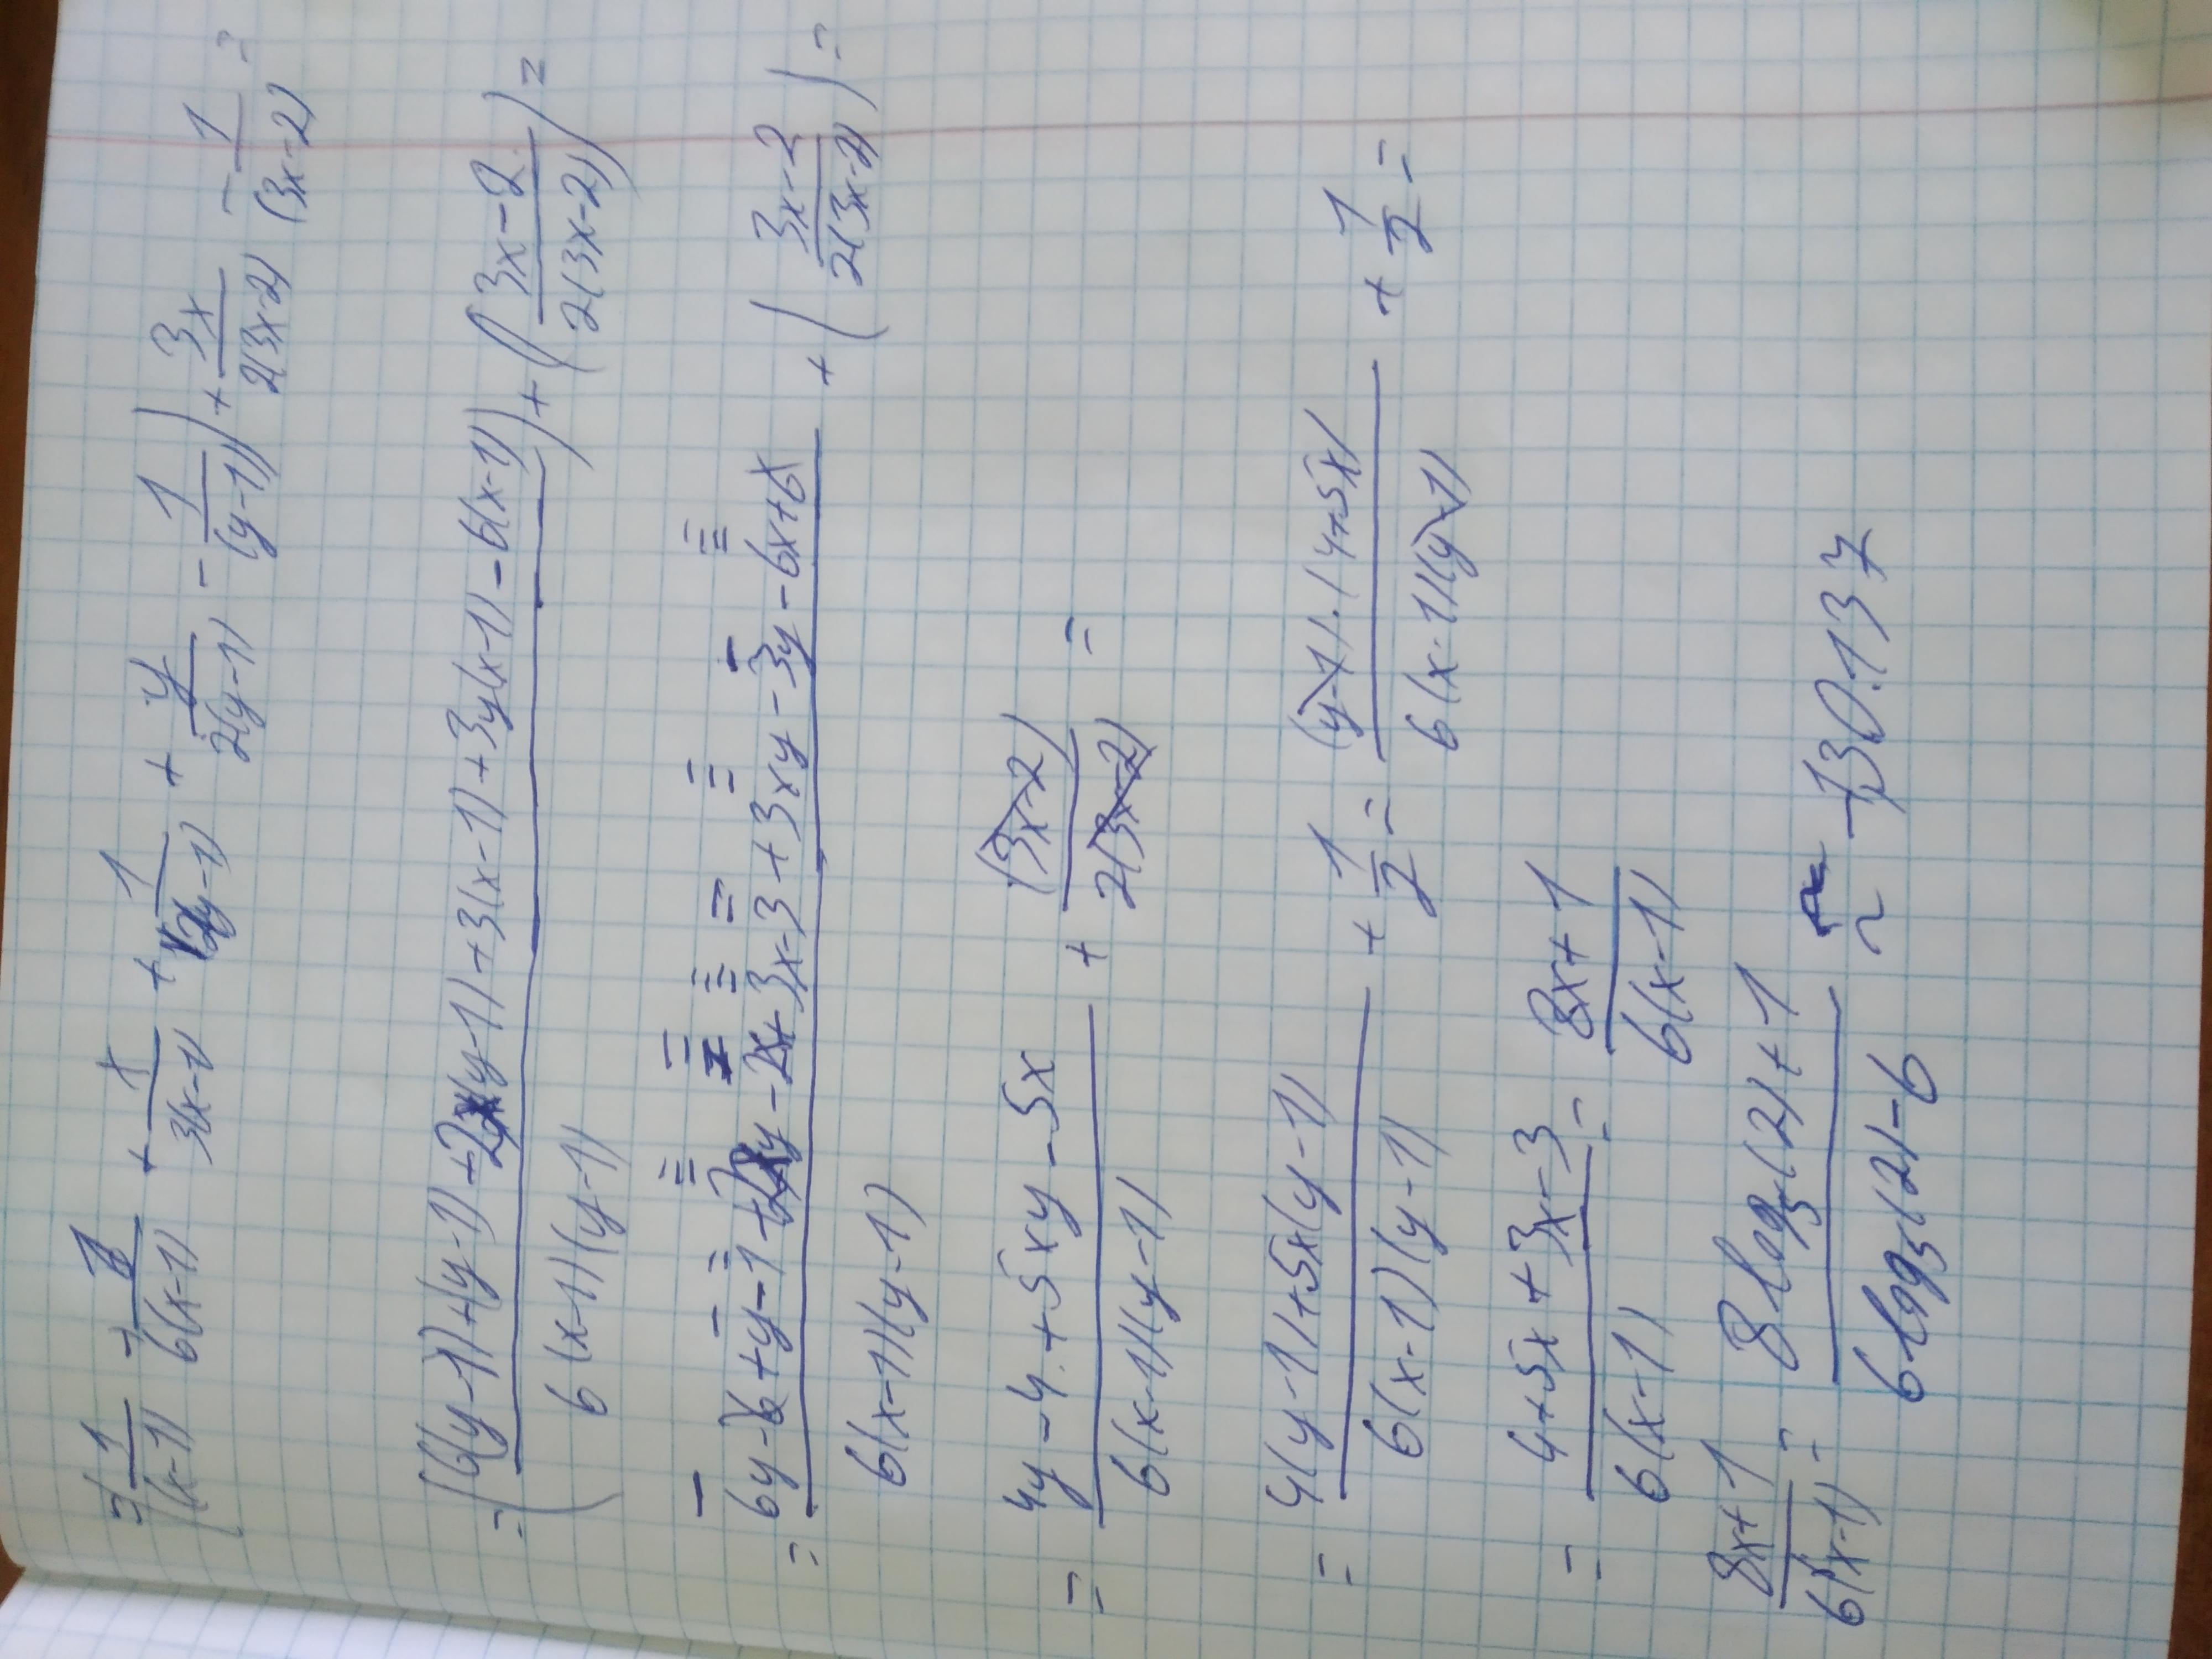 = (1/(x-1) + 1/6(x-1) + x/3(x-1) + 1/2(y-1) + y/2(y-1) - 1/(y-1)) + 3x/2(3x-2) - 1/(3x-2) =
= (6(y-1)+(y-1)+2x(y-1)+3(x-1)+3y(x-1)-6(x-1) / 6(x-1)(y-1)) + ((3x-2 / 2(3x-2)) =
= 6y-6+y-1+2xy-2x+3x-3+3xy-3y-6x+6 / 6(x-1)(y-1) + (3x-2 / 2(3x-2)) =
= 4y-4+5xy-5x / 6(x-1)(y-1) + (3x-2) / 2(3x-2) =
= 4(y-1)+5x(y-1) / 6(x-1)(y-1) + 1/2 = (y-1)·(4+5x) / 6(x-1)(y-1) + 1/2 =
= 4+5x+3x-3 / 6(x-1) = 8x+1 / 6(x-1)
8x+1 / 6(x-1) = 8 log₅(2)+1 / 6 log₅(2)-6 ~ -130.137